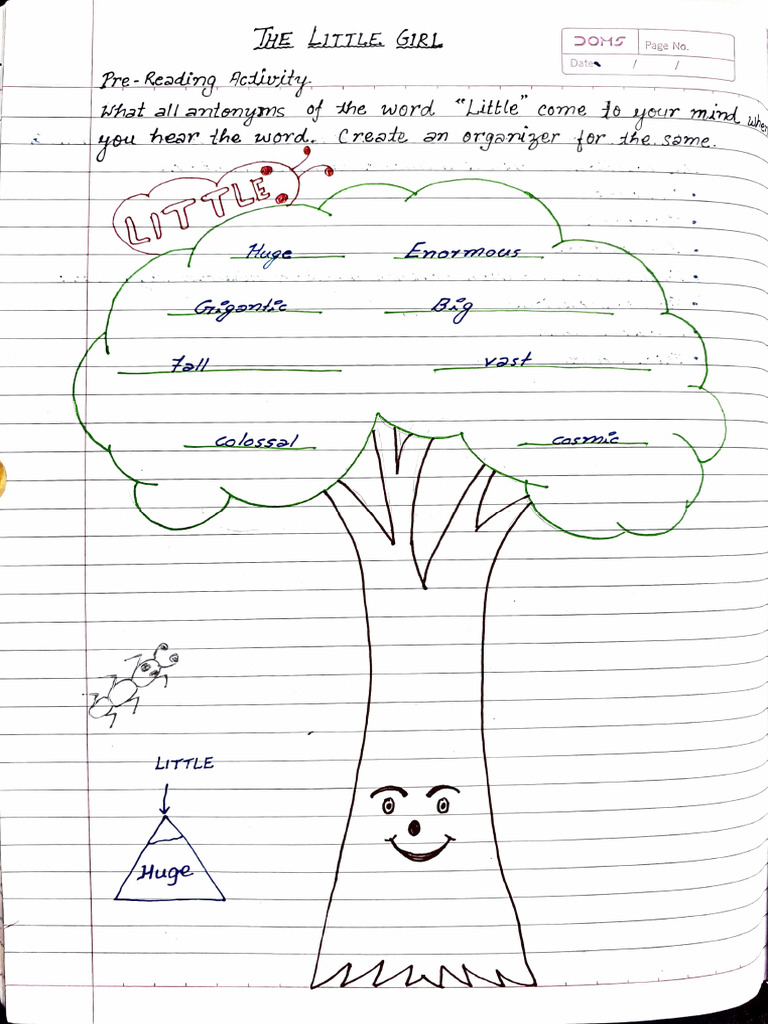 THE LITTLE GIRL
DOMS Page No.
Date / /
Pre-Reading Activity.
What all antonyms of the word "Little" come to your mind when
you hear the word. Create an organizer for the same.
LITTLE
Huge Enormous
Gigantic Big
Tall vast
colossal cosmic
LITTLE
Huge